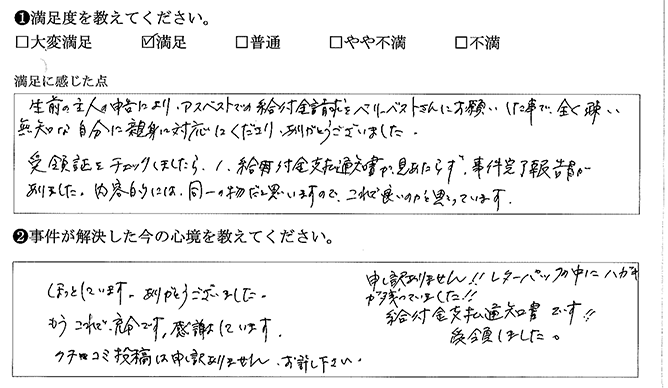 ❶満足度を教えてください。
□大変満足 ☑満足 □普通 □やや不満 □不満
満足に感じた点
生前の主人の申告により、アスベストでの給付金請求をベリーベストさんにお願いした事で、全く疎い
無知な自分に親身に対応してくださり、ありがとうございました。
受領証をチェックしましたら、1、給付金支払通知書が見あたらず、事件完了報告書が
ありました。内容的には、同一の物だと思いますので、これで良いのかと思っています。
❷事件が解決した今の心境を教えてください。
ほっとしています。ありがとうございました。
もうこれで充分です、感謝しています。
クチコミ投稿は申し訳ありません、お許し下さい。
申し訳ありません!!レターパックの中にハガキ
が残っていました!!
給付金支払通知書です!!
受領しました。